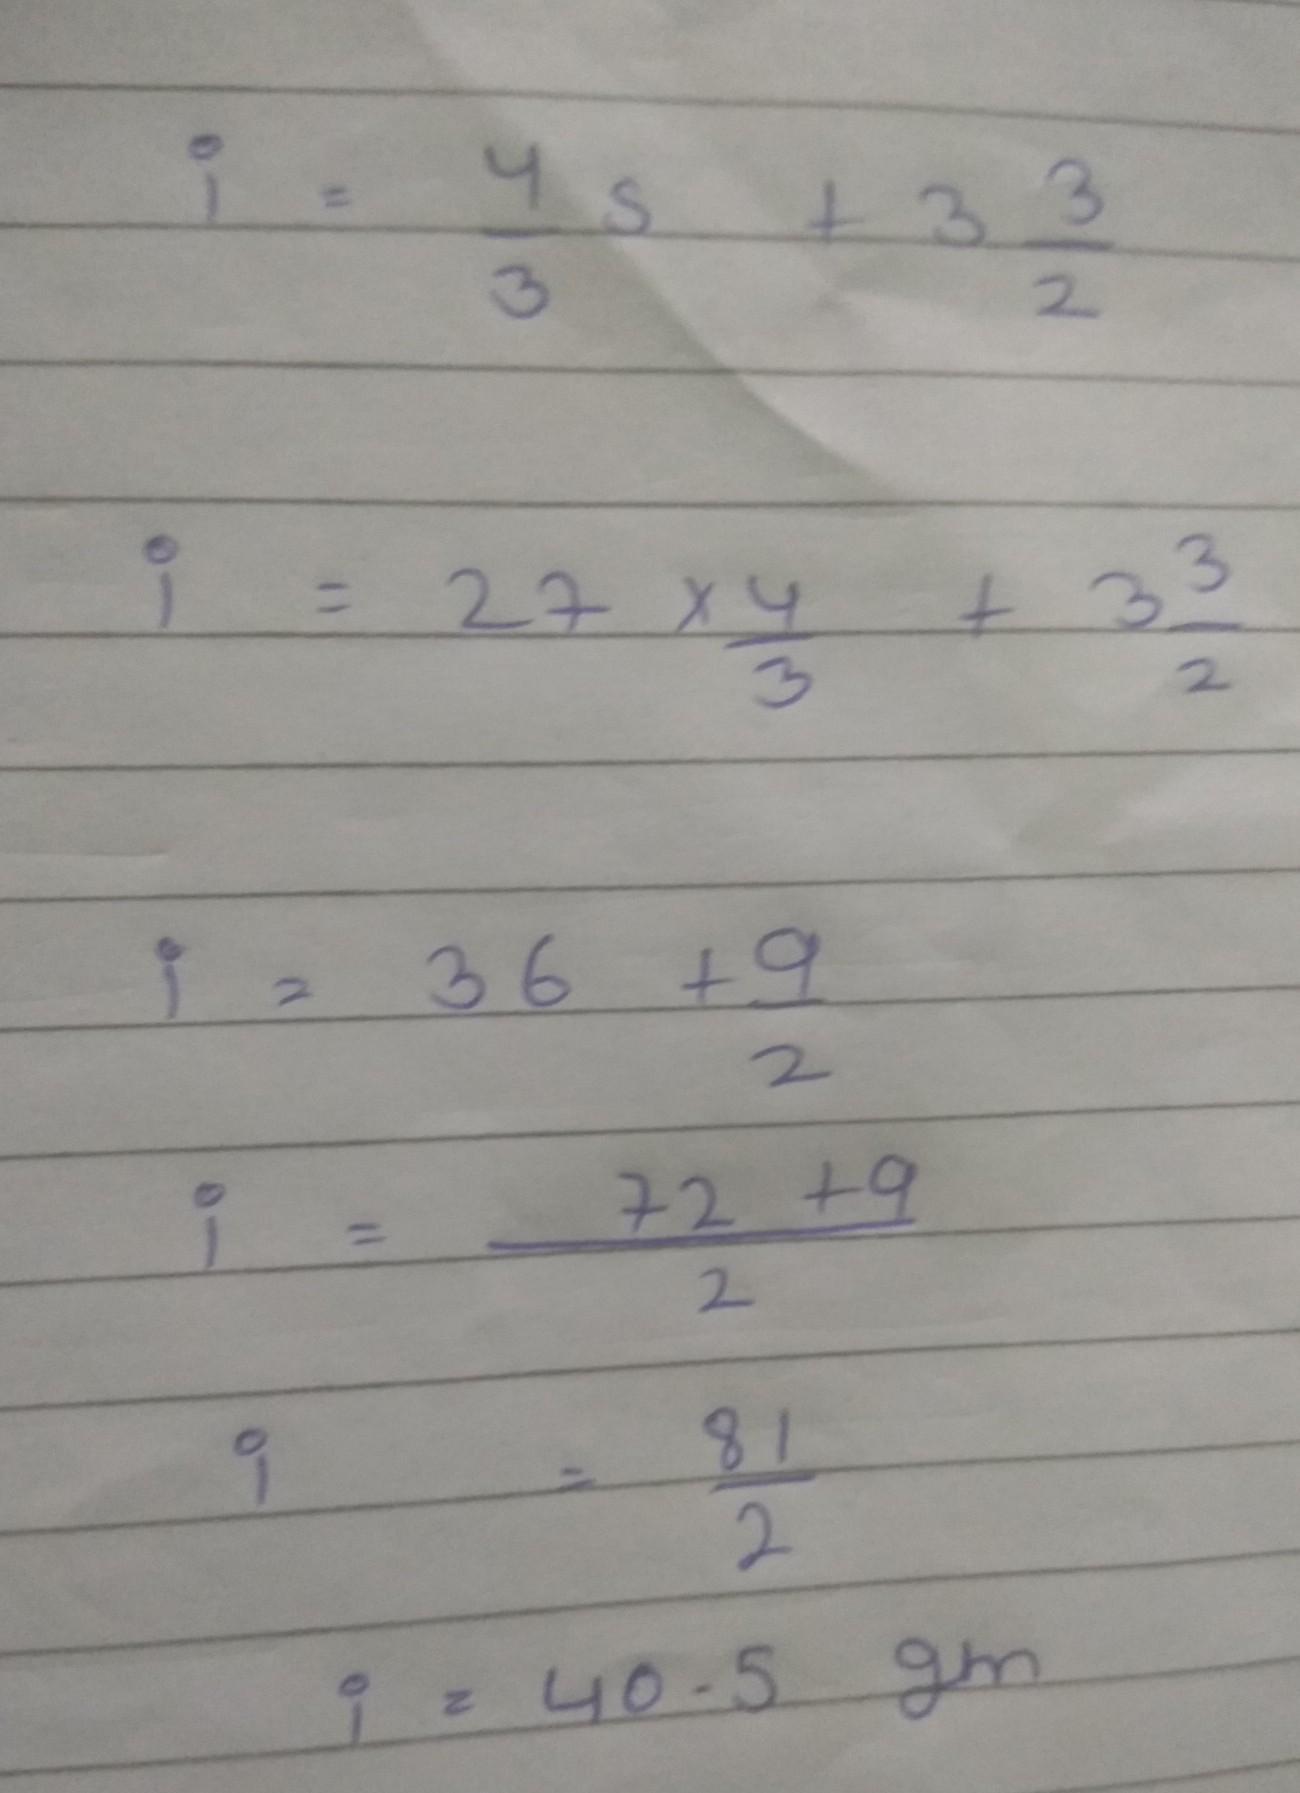 i = 4/3 s + 3 3/2
i = 27 × 4/3 + 3 3/2
i = 36 + 9/2
i = 72 + 9 / 2
i = 81/2
i = 40.5 gm